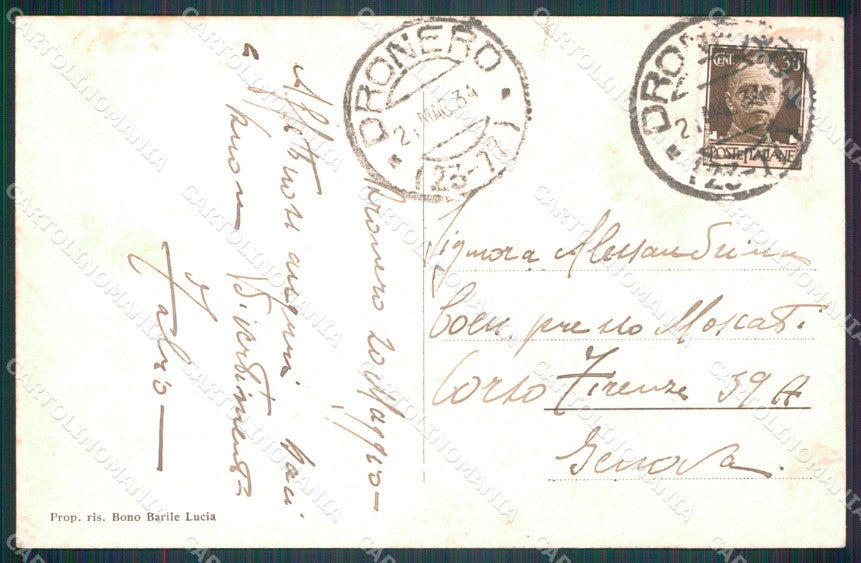 Dronero 20 Maggio
Affettuosi auguri baci
e buon divertimento
Fabio
DRONERO
21 MAG 34
(23-
DRONERO
CENT. 30
POSTE ITALIANE
Signora Alessandrina
presso Moscati
Corso Firenze 39A
Genova.
Prop. ris. Bono Barile Lucia
CARTOLINOMANIA